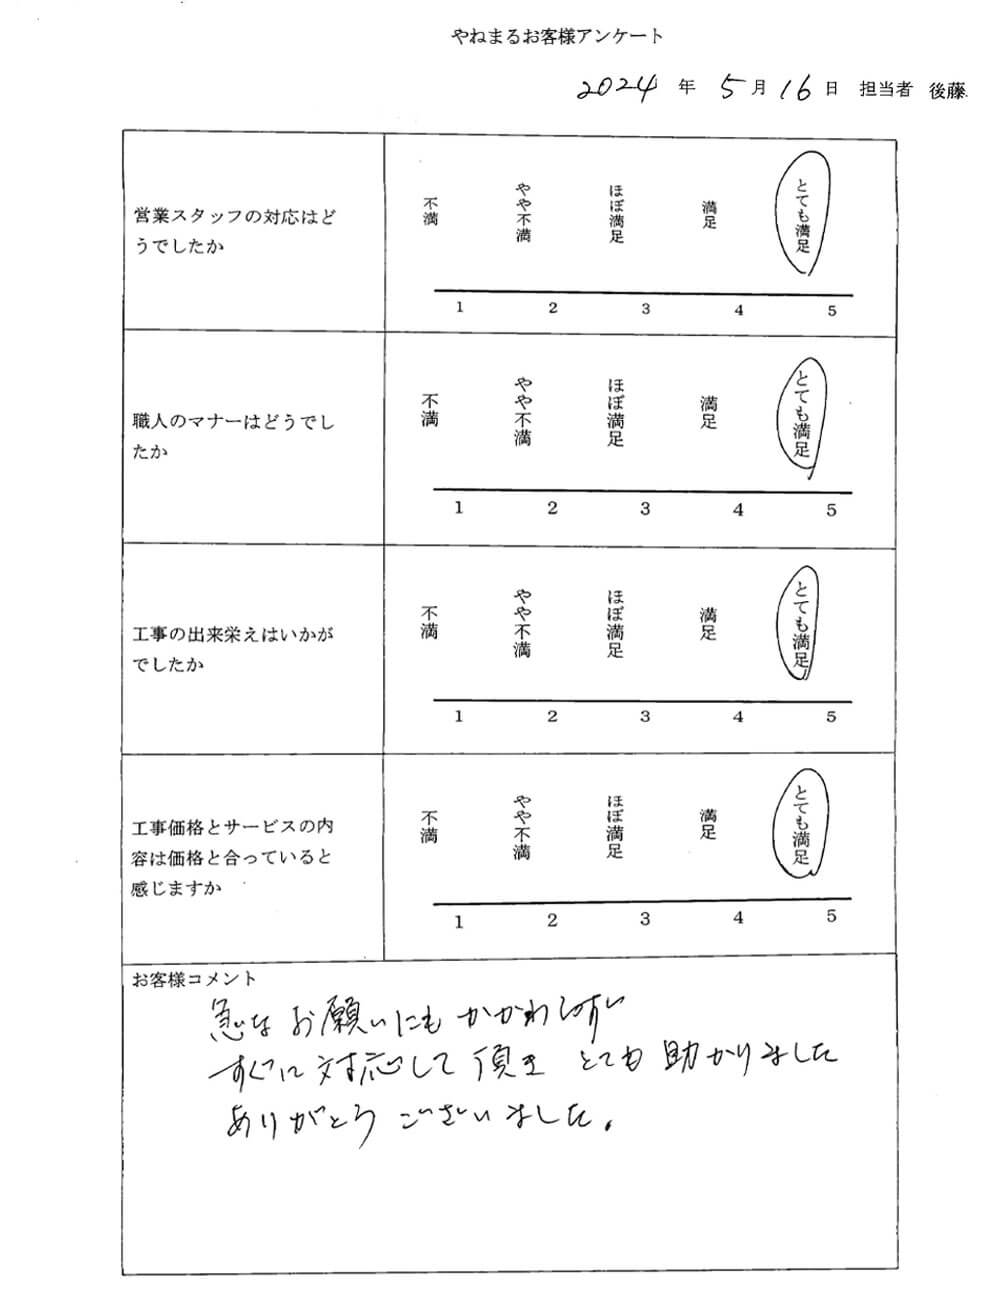 やねまるお客様アンケート
2024 年 5 月 16 日 担当者 後藤
営業スタッフの対応はど
うでしたか
不満 やや不満 ほぼ満足 満足 とても満足
1 2 3 4 5
職人のマナーはどうでし
たか
不満 やや不満 ほぼ満足 満足 とても満足
1 2 3 4 5
工事の出来栄えはいかが
でしたか
不満 やや不満 ほぼ満足 満足 とても満足
1 2 3 4 5
工事価格とサービスの内
容は価格と合っていると
感じますか
不満 やや不満 ほぼ満足 満足 とても満足
1 2 3 4 5
お客様コメント
急なお願いにもかかわらず
すぐに対応して頂き とても助かりました
ありがとうございました。